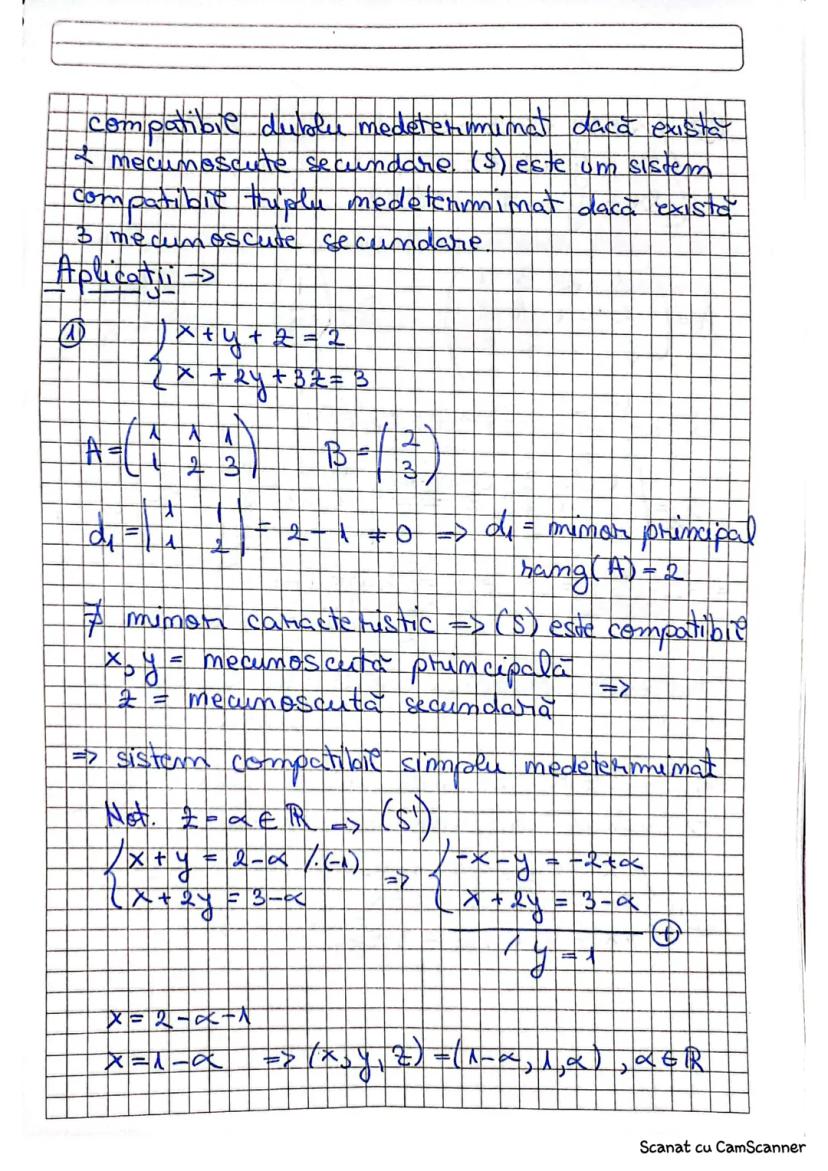 compatibil dublu nedeterminat dacă există
2 necunoscute secundare. (S) este un sistem
compatibil triplu nedeterminat dacă există
3 necunoscute secundare.
Aplicații →
① { x + y + z = 2
{ x + 2y + 3z = 3
A = ( 1 1 1 ; 1 2 3 ) B = ( 2 ; 3 )
d₁ = | 1 1 ; 1 2 | = 2 - 1 ≠ 0 => d₁ = minor principal
rang(A) = 2
∄ minor caracteristic => (S) este compatibil
x, y = necunoscută principală
z = necunoscută secundară =>
=> sistem compatibil simplu nedeterminat
Not. z = α ∈ ℝ => (S')
{ x + y = 2 - α /·(-1) => { -x - y = -2 + α
{ x + 2y = 3 - α { x + 2y = 3 - α
/ y = 1 ⊕
x = 2 - α - 1
x = 1 - α => (x, y, z) = (1 - α, 1, α), α ∈ ℝ
Scanat cu CamScanner